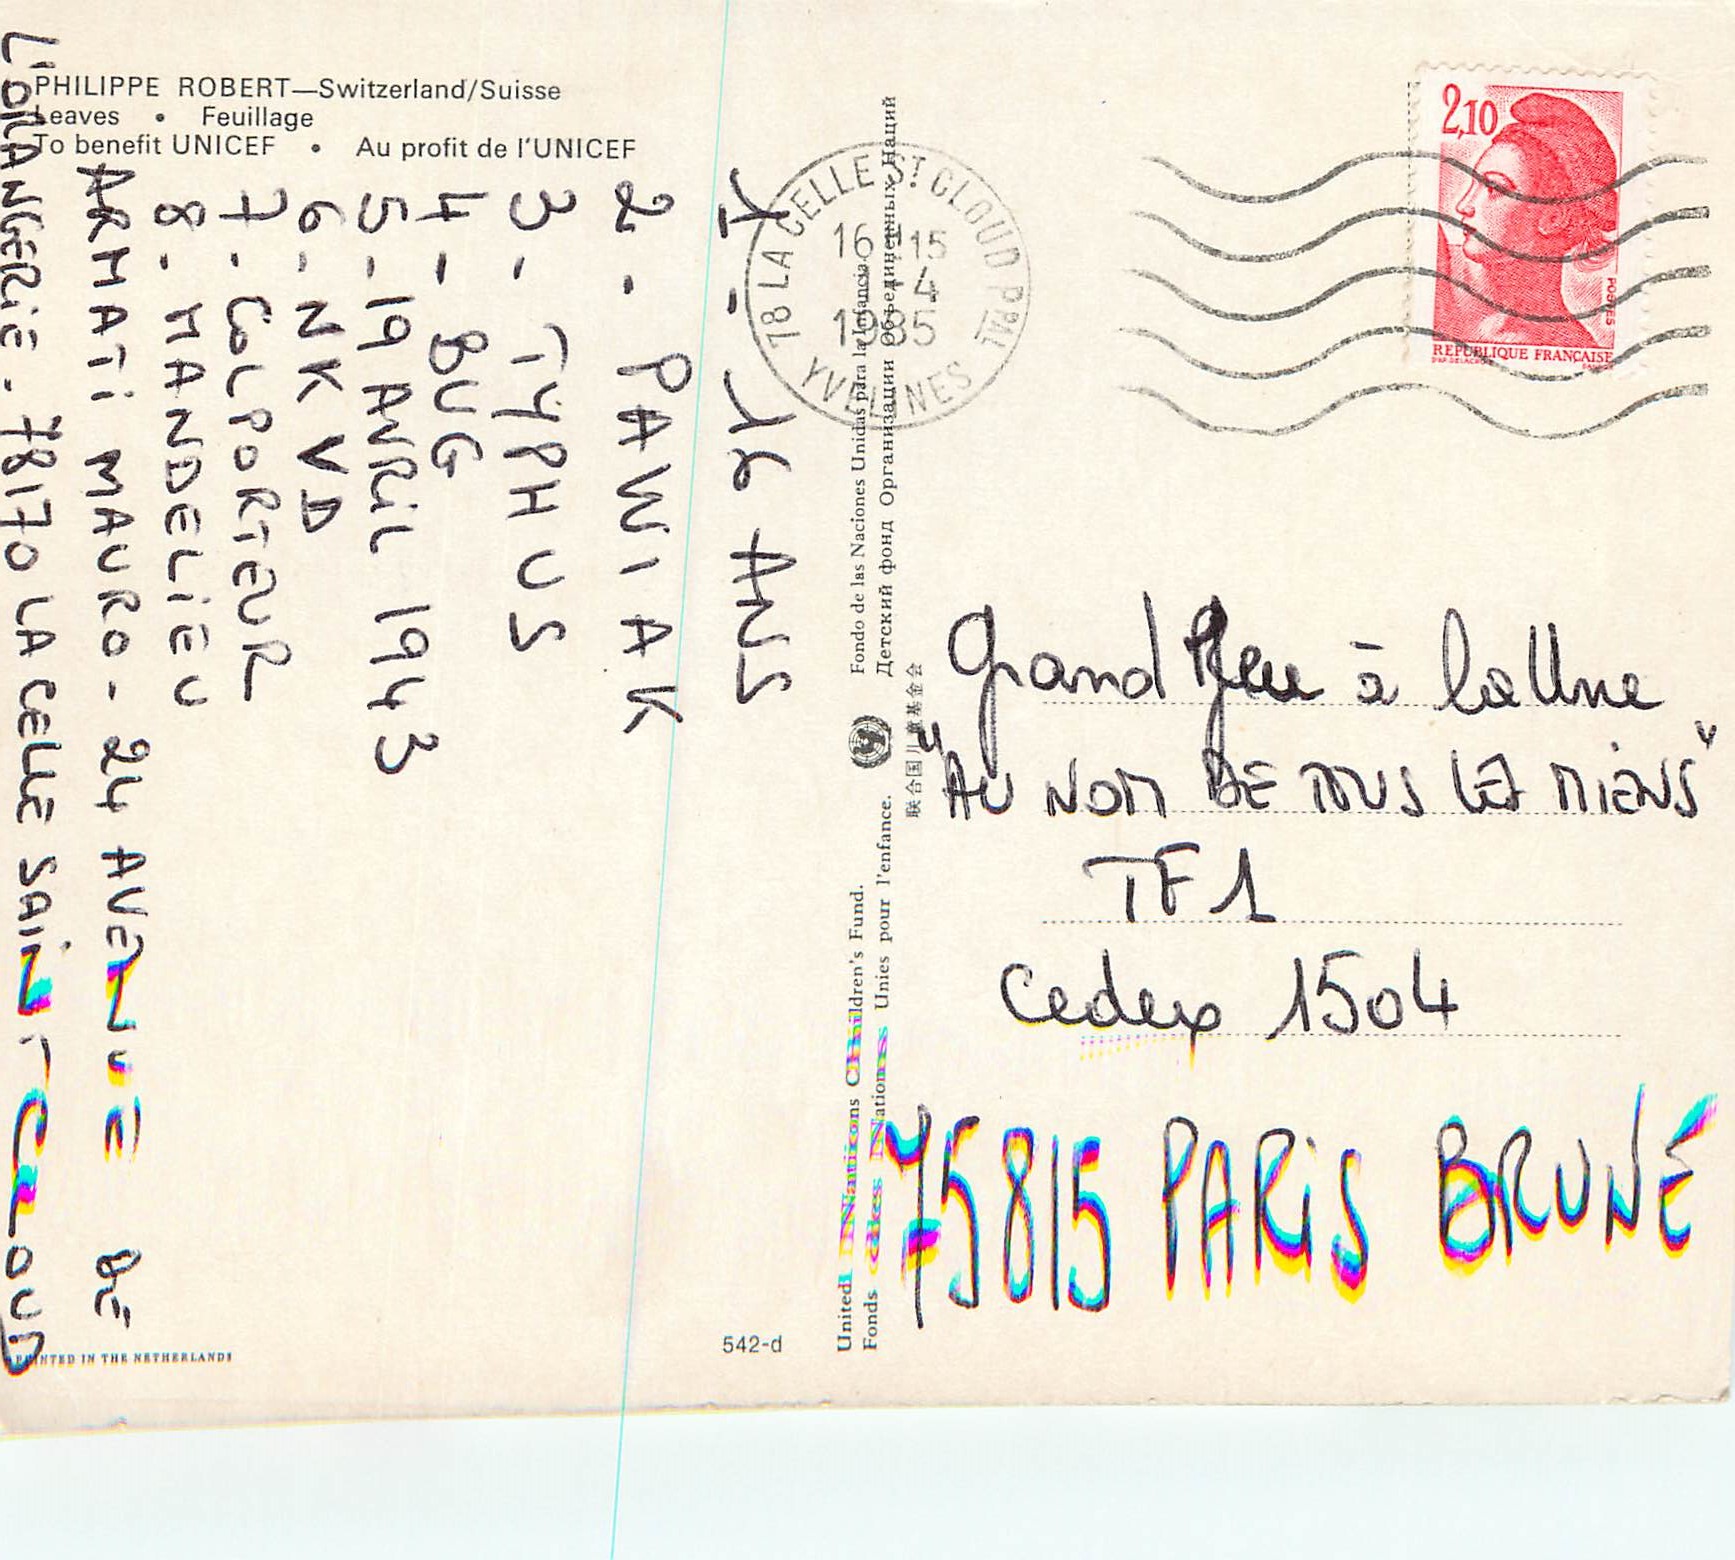 PHILIPPE ROBERT—Switzerland/Suisse
Leaves • Feuillage
To benefit UNICEF • Au profit de l'UNICEF
1 - 16 ANS
2 - PAWIAK
3 - TYPHUS
4 - BUG
5 - 19 AVRIL 1943
6 - NKVD
7 - COLPORTEUR
8 - MANDELIEU
ARMATI MAURO - 24 AVENUE DE
L'ORANGERIE - 78170 LA CELLE SAINT CLOUD
PRINTED IN THE NETHERLANDS
542-d
United Nations Children's Fund.
Fonds des Nations Unies pour l'enfance.
Fondo de las Naciones Unidas para la Infancia
Детский фонд Организации Объединенных Наций
联合国儿童基金会
78 LA CELLE ST CLOUD PPAL
16 H 15
1-4
1985
YVELINES
2,10
POSTES
REPUBLIQUE FRANÇAISE
Grand Jeu à la Une
"AU NOM DE TOUS LES MIENS"
TF1
Cedex 1504
75815 PARIS BRUNE